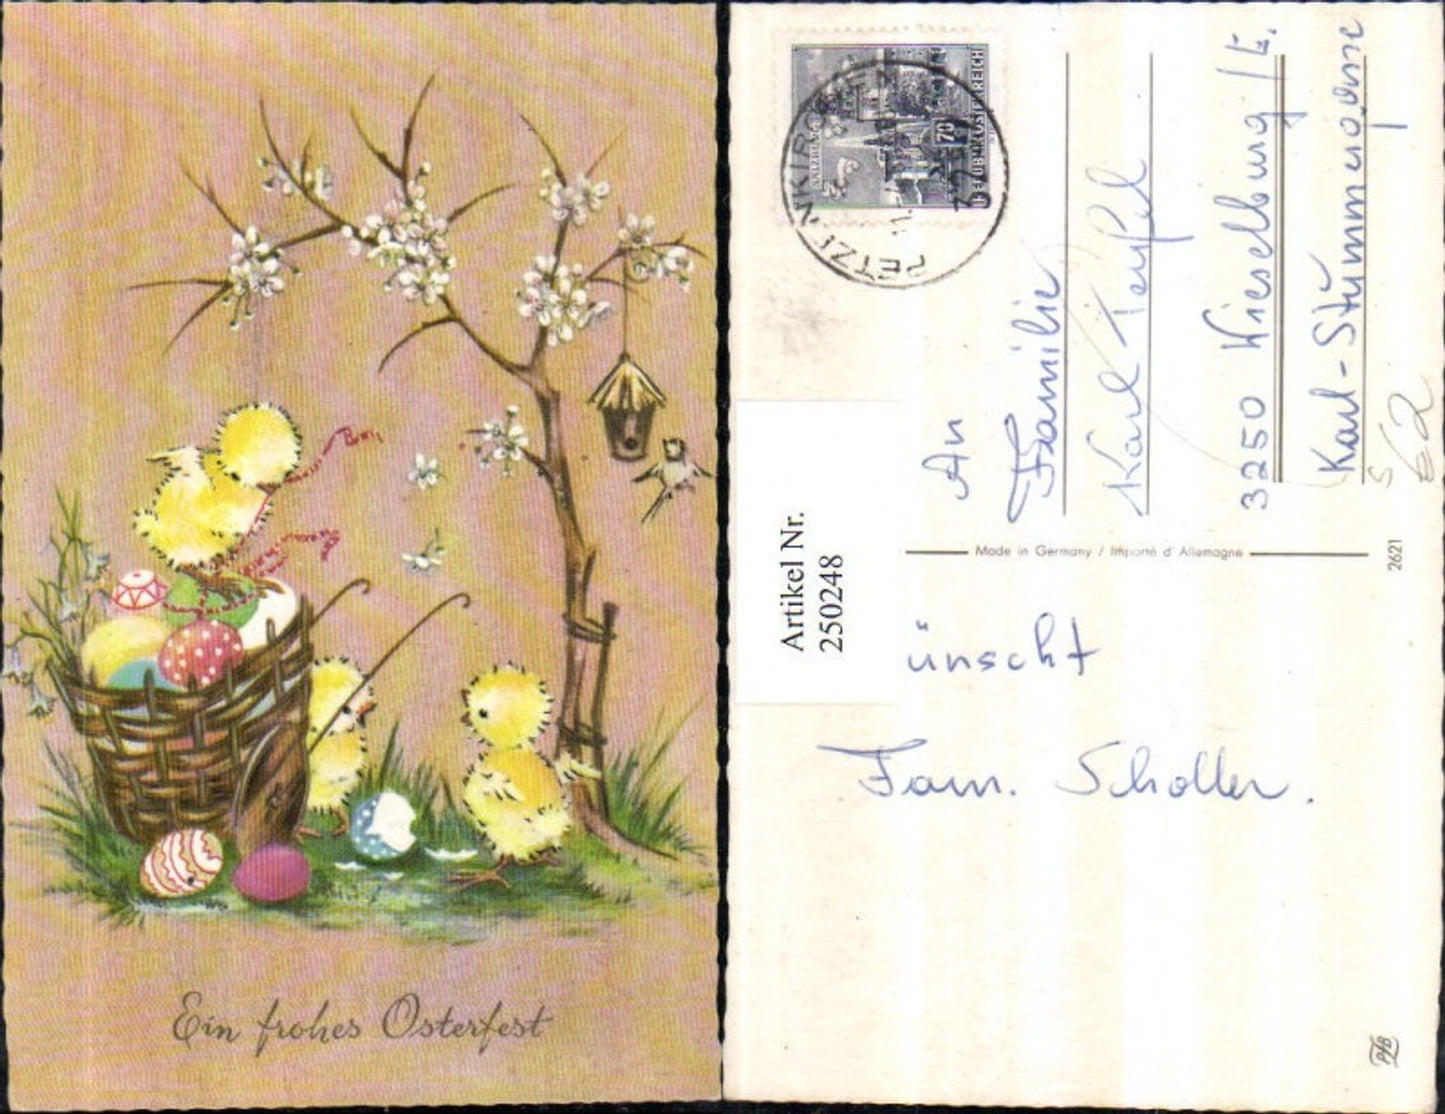 Ein frohes Osterfest
REPUBLIK ÖSTERREICH
70
PETZENKIRCHEN
An
Familie
Karl Teufel
3250 Wieselburg / E.
Karl-Stummer
62
Made in Germany / Importé d'Allemagne
2621
Artikel Nr.
250248
ünscht
Fam. Scholler.
PFB